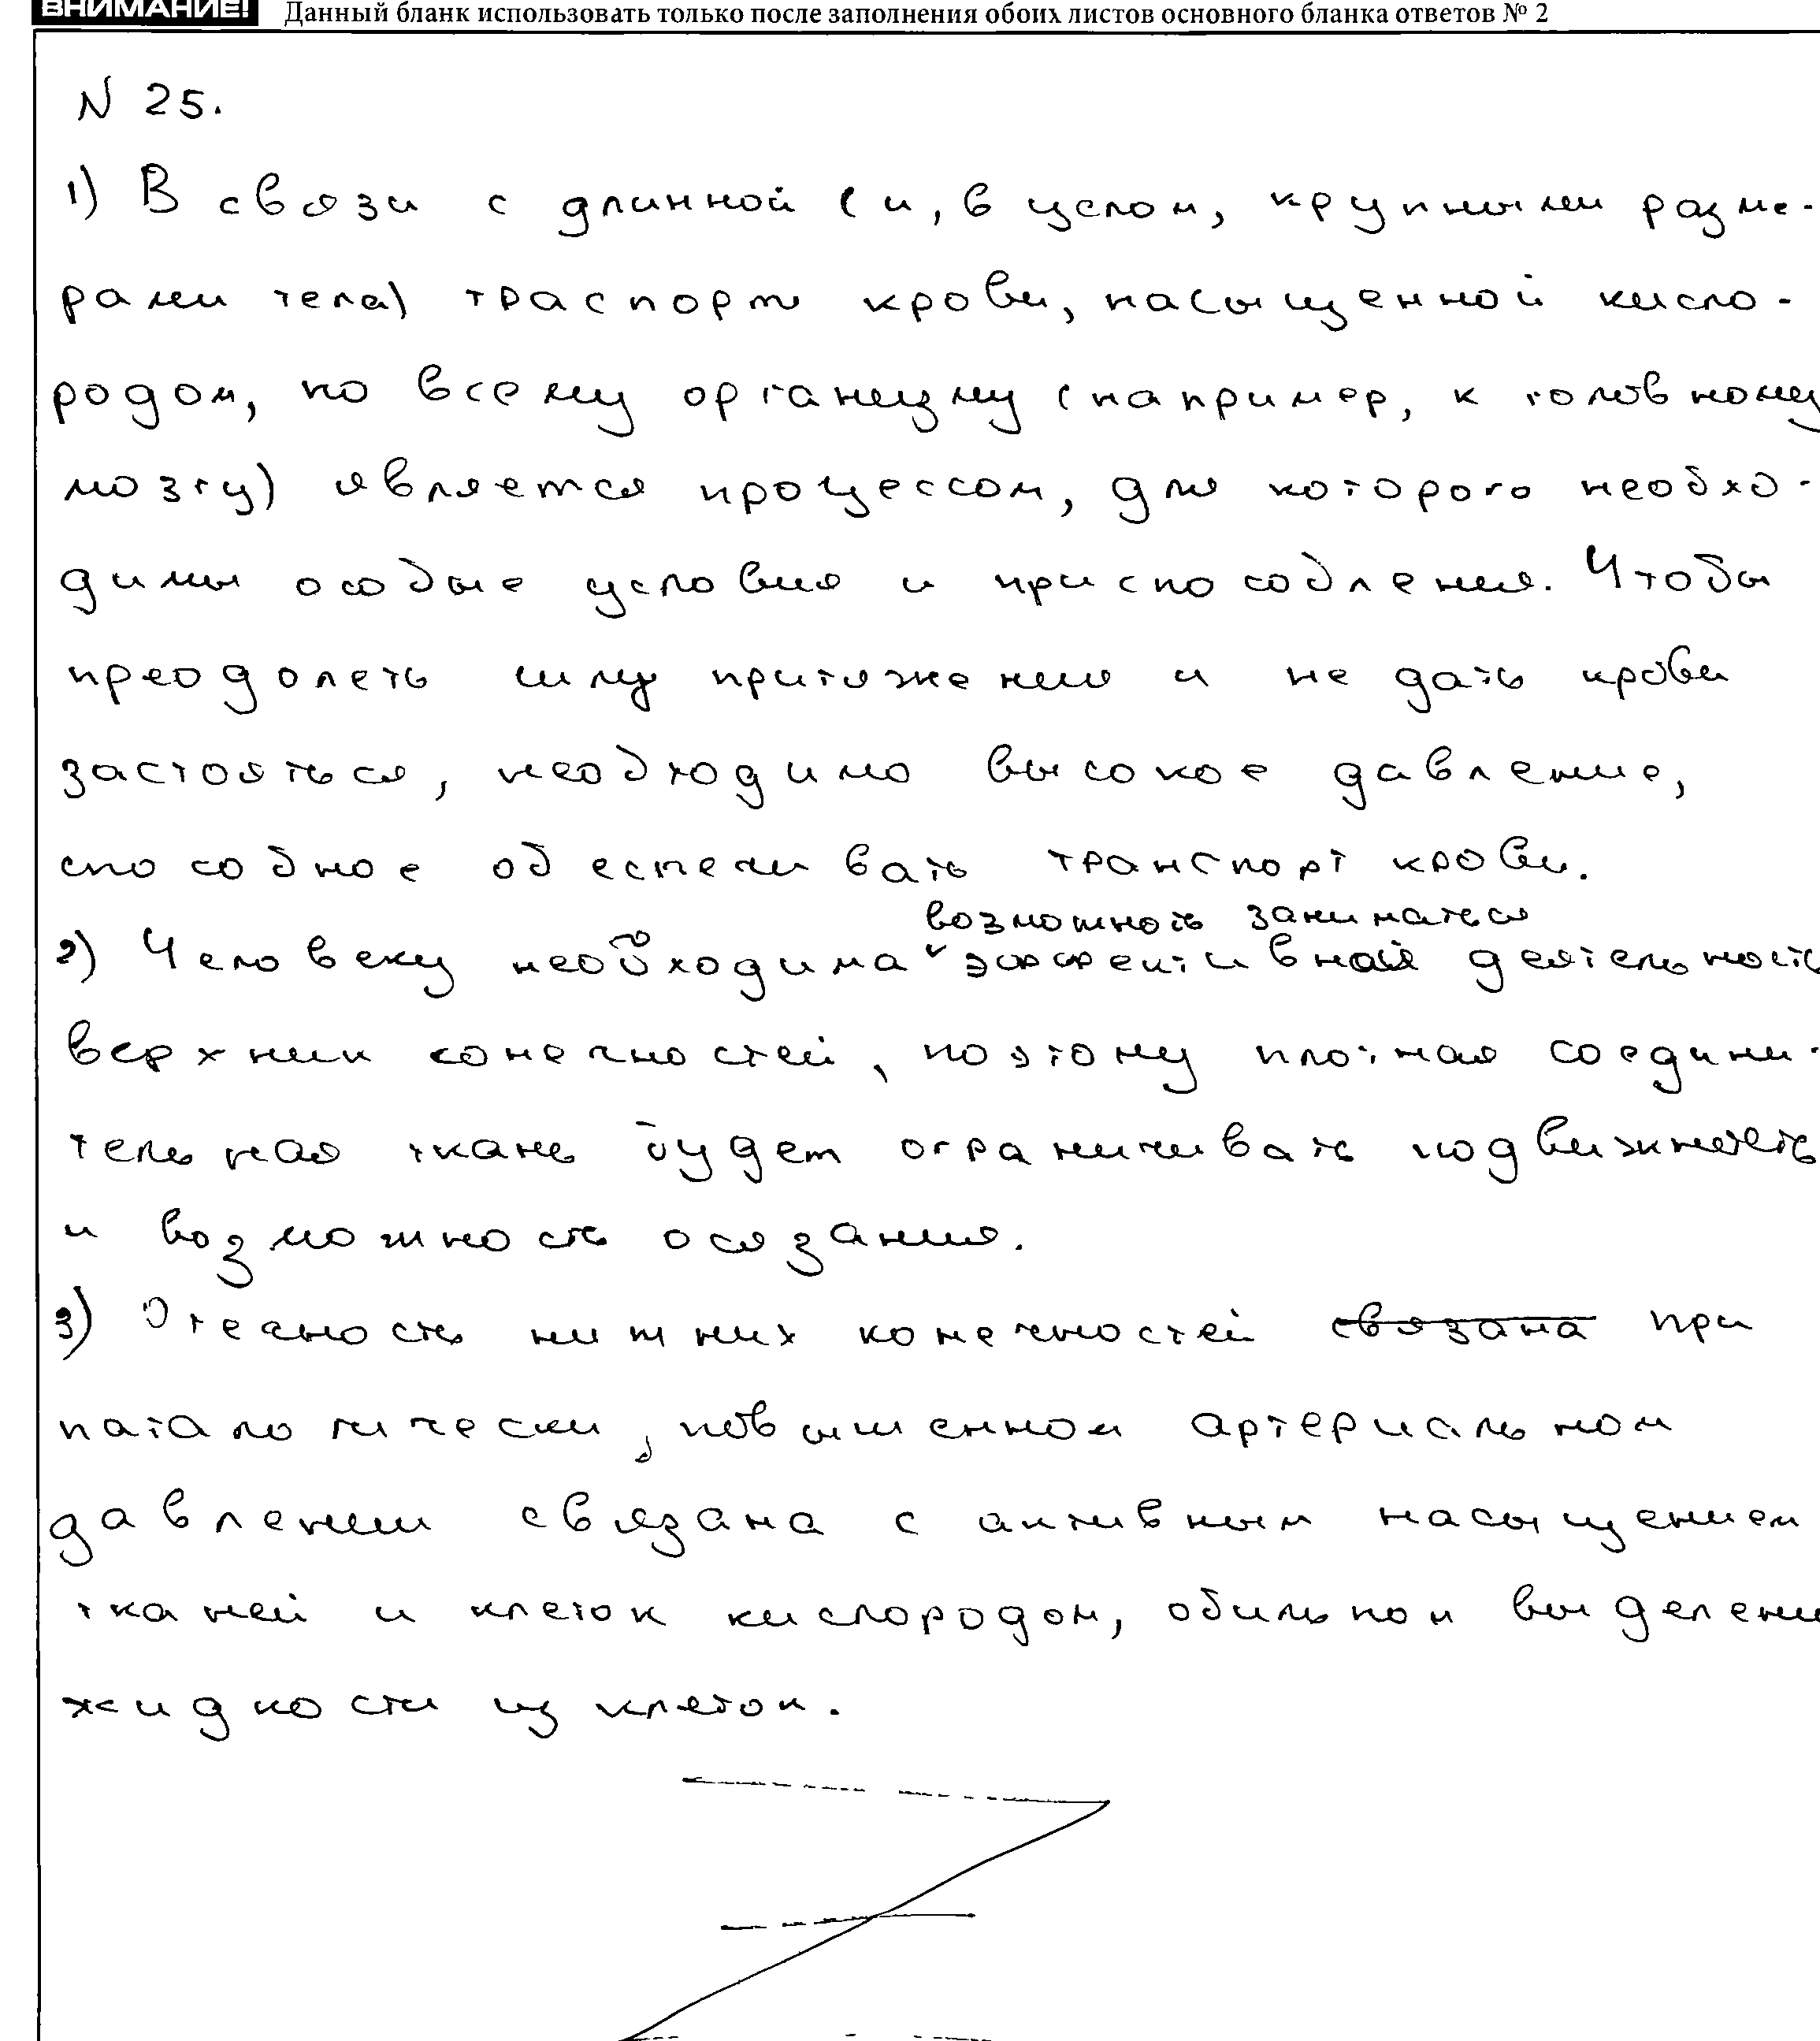 ВНИМАНИЕ! Данный бланк использовать только после заполнения обоих листов основного бланка ответов № 2
N 25.
1) В связи с длинной (и, в целом, крупными разме-
рами тела) траспорт крови, насыщенной кисло-
родом, по всему организму (например, к головному
мозгу) является процессом, для которого необхо-
димы особые условия и приспособления. Чтобы
преодолеть силу притяжения и не дать крови
застояться, необходимо высокое давление,
способное обеспечивать транспорт крови.
возможность заниматься
2) Человеку необходима эффективной деятельность
верхних конечностей, поэтому плотная соедини-
тельная ткань будет ограничивать подвижность
и возможность осязания.
3) Отечность нижних конечностей связана при
паталогически, повышенном артериальном
давлении связана с активным насыщением
тканей и клеток кислородом, обильном выделени
жидкости из клеток.